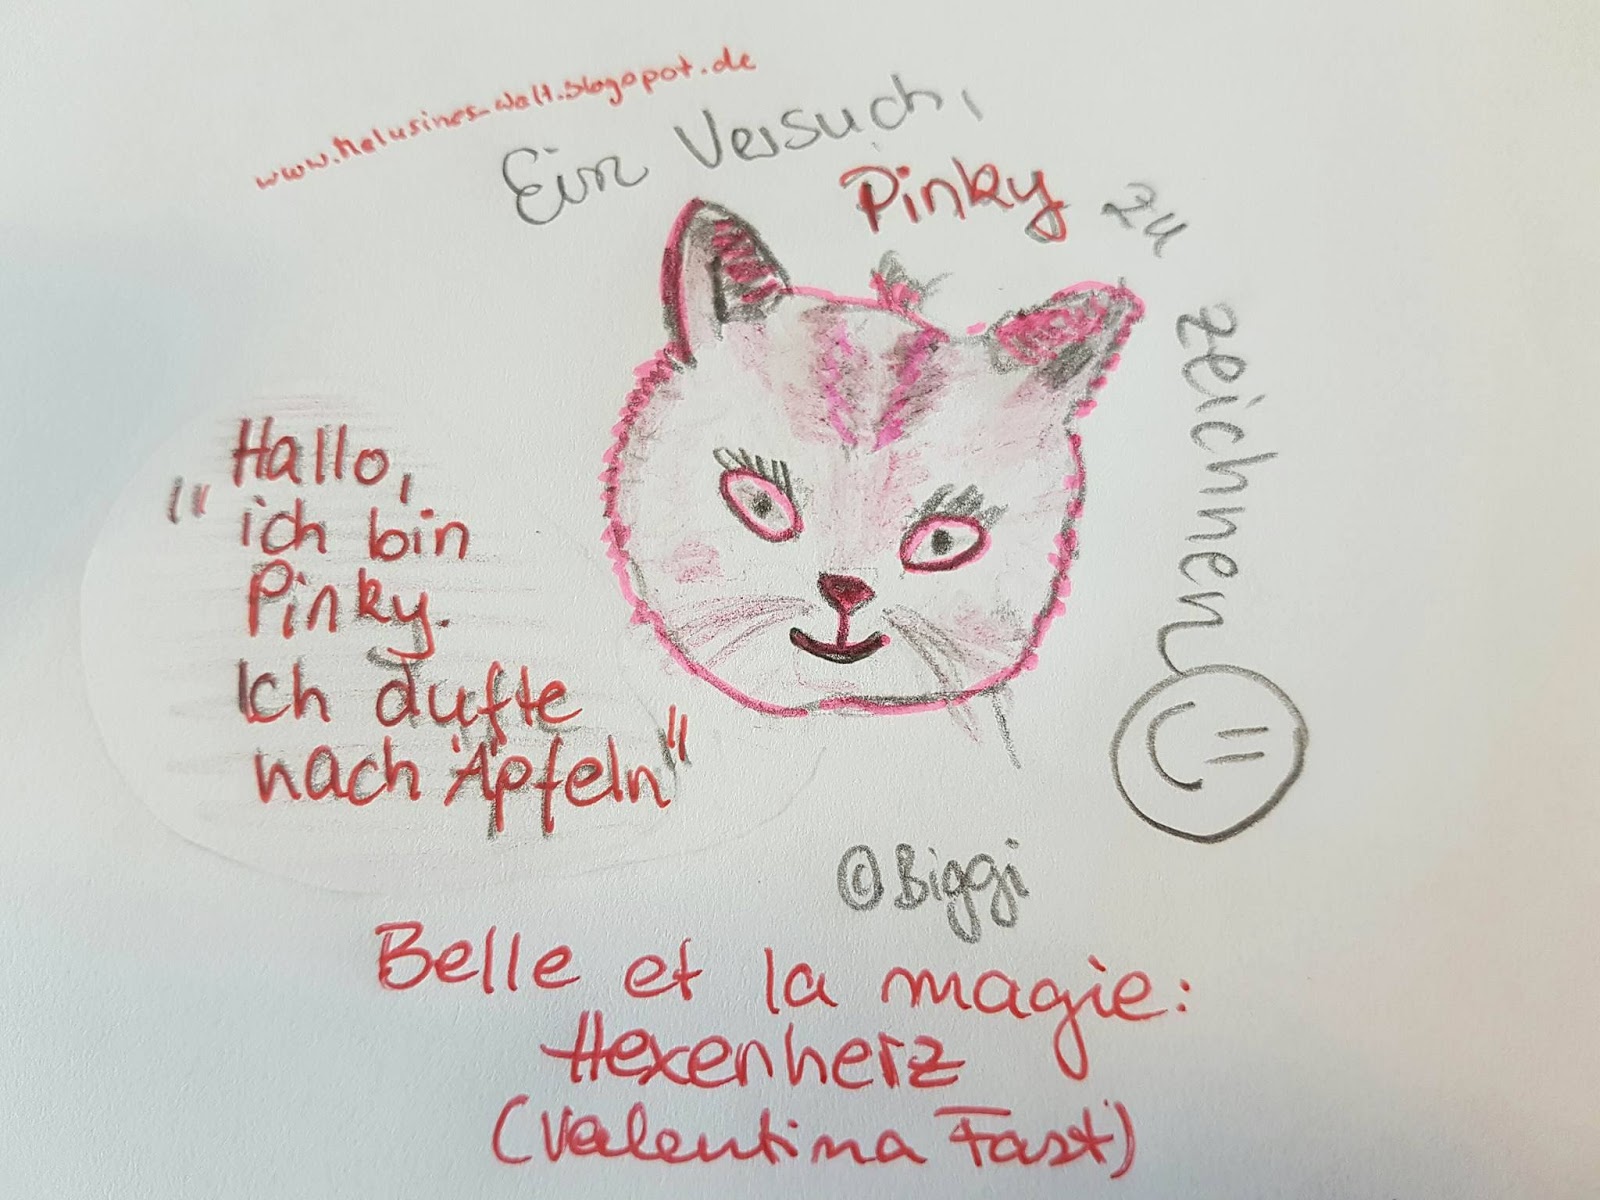 www.Melusines-Welt.blogspot.de
Ein Versuch,
Pinky zu
zeichnen
"Hallo,
ich bin
Pinky.
Ich dufte
nach Äpfeln"
©Biggi
Belle et la magie:
Hexenherz
(Valentina Fast)